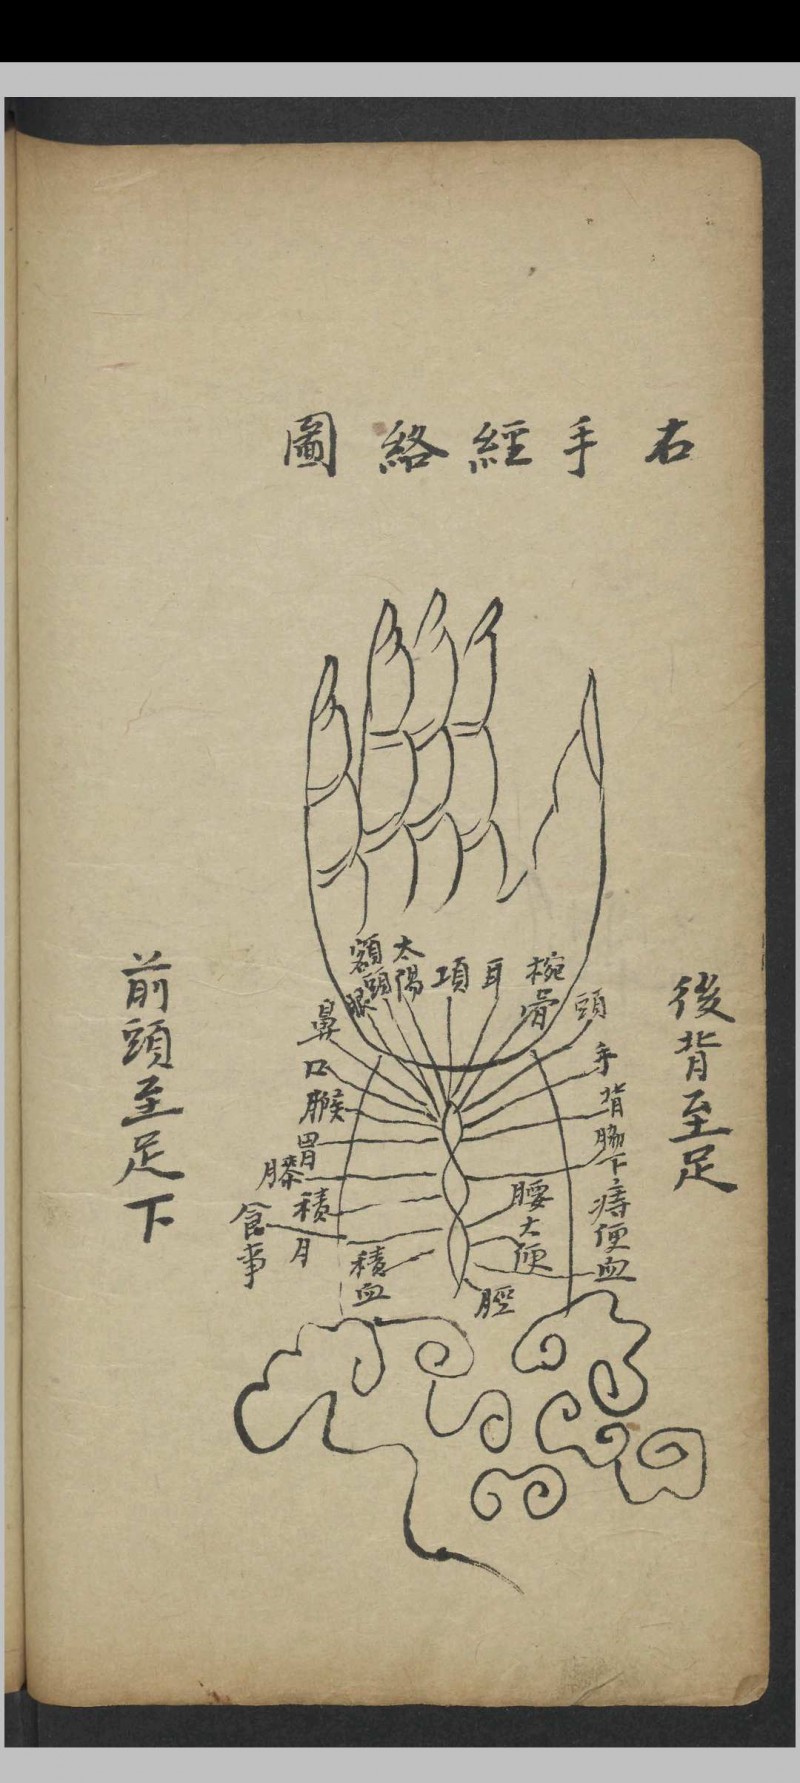 右手經絡圖
後背至足
頭
椀骨
耳
項
太陽
額頭
眼
鼻
口
喉
胃
膝
積月
食事
積血
手
背
脇下
痔便血
腰
大便
脛
前頭至足下